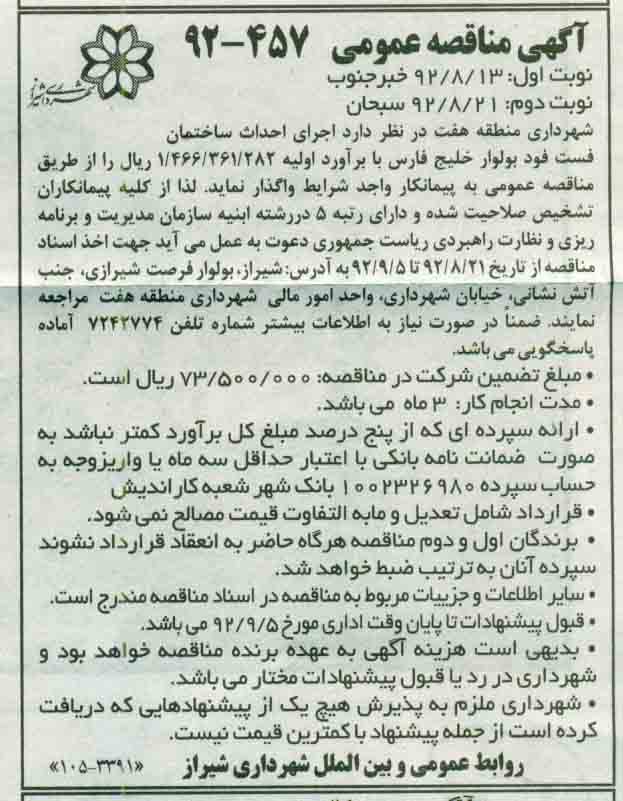 آگهی مناقصه عمومی ۴۵۷-۹۲
شهرداری شیراز
نوبت اول: ۹۲/۸/۱۳ خبرجنوب
نوبت دوم: ۹۲/۸/۲۱ سبحان
شهرداری منطقه هفت در نظر دارد اجرای احداث ساختمان
فست فود بولوار خلیج فارس با برآورد اولیه ۱/۴۶۶/۳۶۱/۲۸۲ ریال را از طریق
مناقصه عمومی به پیمانکار واجد شرایط واگذار نماید. لذا از کلیه پیمانکاران
تشخیص صلاحیت شده و دارای رتبه ۵ دررشته ابنیه سازمان مدیریت و برنامه
ریزی و نظارت راهبردی ریاست جمهوری دعوت به عمل می آید جهت اخذ اسناد
مناقصه از تاریخ ۹۲/۸/۲۱ تا ۹۲/۹/۵ به آدرس: شیراز، بولوار فرصت شیرازی، جنب
آتش نشانی، خیابان شهرداری، واحد امور مالی شهرداری منطقه هفت مراجعه
نمایند. ضمناً در صورت نیاز به اطلاعات بیشتر شماره تلفن ۷۲۴۲۷۷۴ آماده
پاسخگویی می باشد.
• مبلغ تضمین شرکت در مناقصه: ۷۳/۵۰۰/۰۰۰ ریال است.
• مدت انجام کار: ۳ ماه می باشد.
• ارائه سپرده ای که از پنج درصد مبلغ کل برآورد کمتر نباشد به
صورت ضمانت نامه بانکی با اعتبار حداقل سه ماه یا واریزوجه به
حساب سپرده ۱۰۰۲۳۲۶۹۸۰ بانک شهر شعبه کاراندیش
• قرارداد شامل تعدیل و مابه التفاوت قیمت مصالح نمی شود.
• برندگان اول و دوم مناقصه هرگاه حاضر به انعقاد قرارداد نشوند
سپرده آنان به ترتیب ضبط خواهد شد.
• سایر اطلاعات و جزییات مربوط به مناقصه در اسناد مناقصه مندرج است.
• قبول پیشنهادات تا پایان وقت اداری مورخ ۹۲/۹/۵ می باشد.
• بدیهی است هزینه آگهی به عهده برنده مناقصه خواهد بود و
شهرداری در رد یا قبول پیشنهادات مختار می باشد.
• شهرداری ملزم به پذیرش هیچ یک از پیشنهادهایی که دریافت
کرده است از جمله پیشنهاد با کمترین قیمت نیست.
روابط عمومی و بین الملل شهرداری شیراز «۳۳۹۱-۱۰۵»